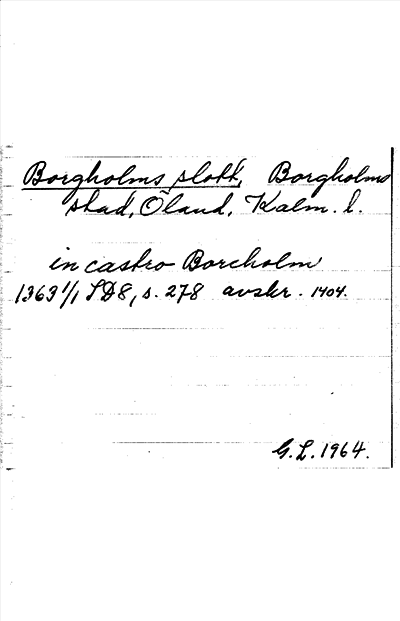 Borgholms slott, Borgholms
stad, Öland, Kalm. l.
in castro Borcholm
1363 1/1 SD8, s. 278 avskr. 1404.
G.L. 1964.